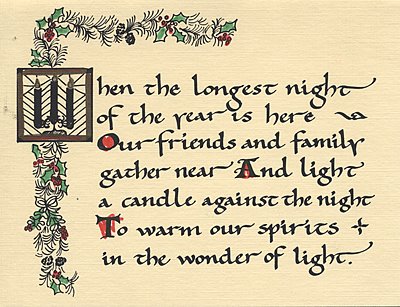 When the longest night
of the year is here
Our friends and family
gather near And light
a candle against the night
To warm our spirits
in the wonder of light.